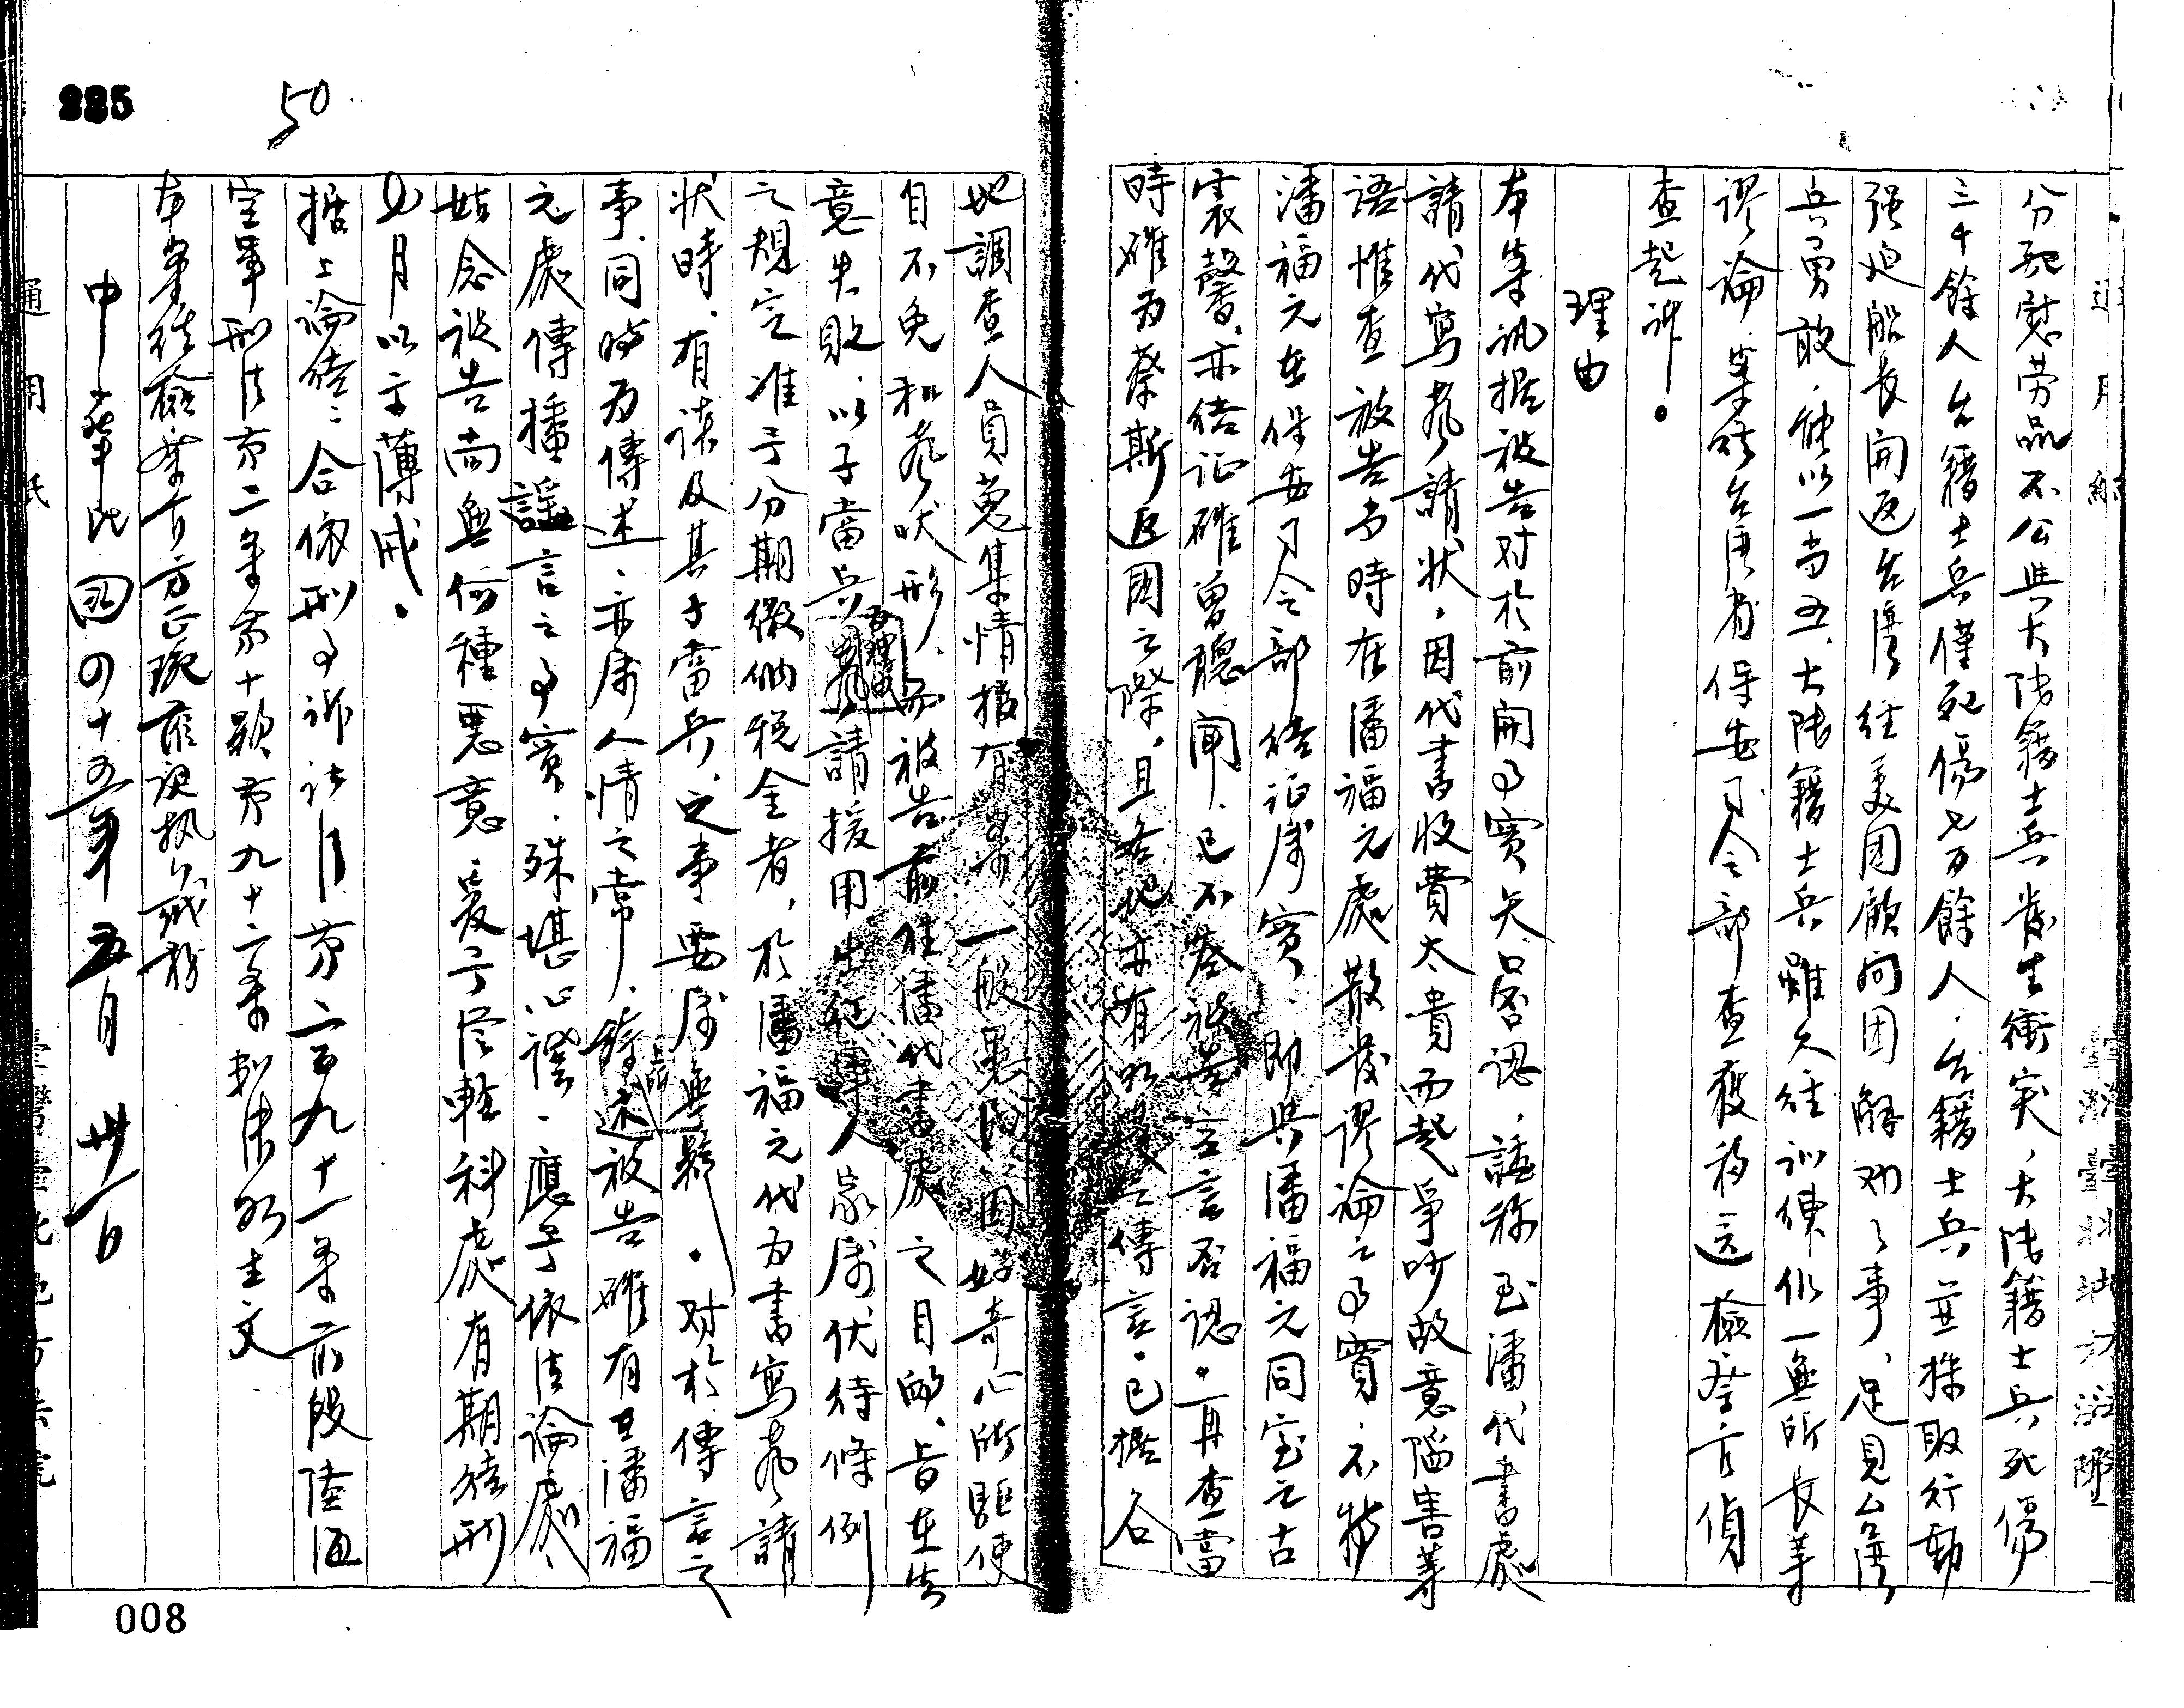 分配慰劳品不公與大陸籍士兵發生衝突、大陸籍士兵死傷
三千餘人台籍士兵僅死傷七百餘人.台籍士兵並採取行動
强迫船長開返台湾経美国顧问团解劝了事、足見台湾
兵勇敢.能以一当五、大陸籍士兵雖久経训練仍一無所長等
謬論.案経台湾省保安司令部查獲移送檢察官偵
查起訴.
理由
本案訊据被告对於前開事實矢口否認,諉称至潘代書處
請代寫聲請狀,因代書收費太貴而起爭吵故意陷害等
語惟查被告当時在潘福元處散發謬論之事實.不特
潘福元在保安司令部結证属實.即與潘福元同室之古
震馨、亦結证確曾聽聞.已不容被告空言否認.再查當
時確为蔡斯返國之際,且各地亦有此類之傳言.已据各
地調查人員蒐集情报有案.一般愚民因好奇心所驅使
自不免和聲吠形.而被告前往潘代書處之目的、旨在生
意失敗.以子當兵為理由請援用出征軍人家属优待條例
之規定准予分期缴納税金者,於潘福元代为書寫聲請
狀時、有谈及其子當兵之事要属無疑.对於傳言之
事、同時为傳述、亦属人情之常、綜上所述被告確有在潘福
元處傳播謡言之事實.殊堪認.應予依法論處、
姑念被告尚無何種惡意爰予從輕科處有期徒刑
以示薄戒.
据上論結:合依刑事訴訟法第二百九十一条前段陸海
空軍刑法第二条第十款第九十二条判决如主文
本案経檢察官方正珮蒞庭执行職務
中華民國四十五年五月卅一日
通用紙
臺灣臺北地方法院
225
50
008